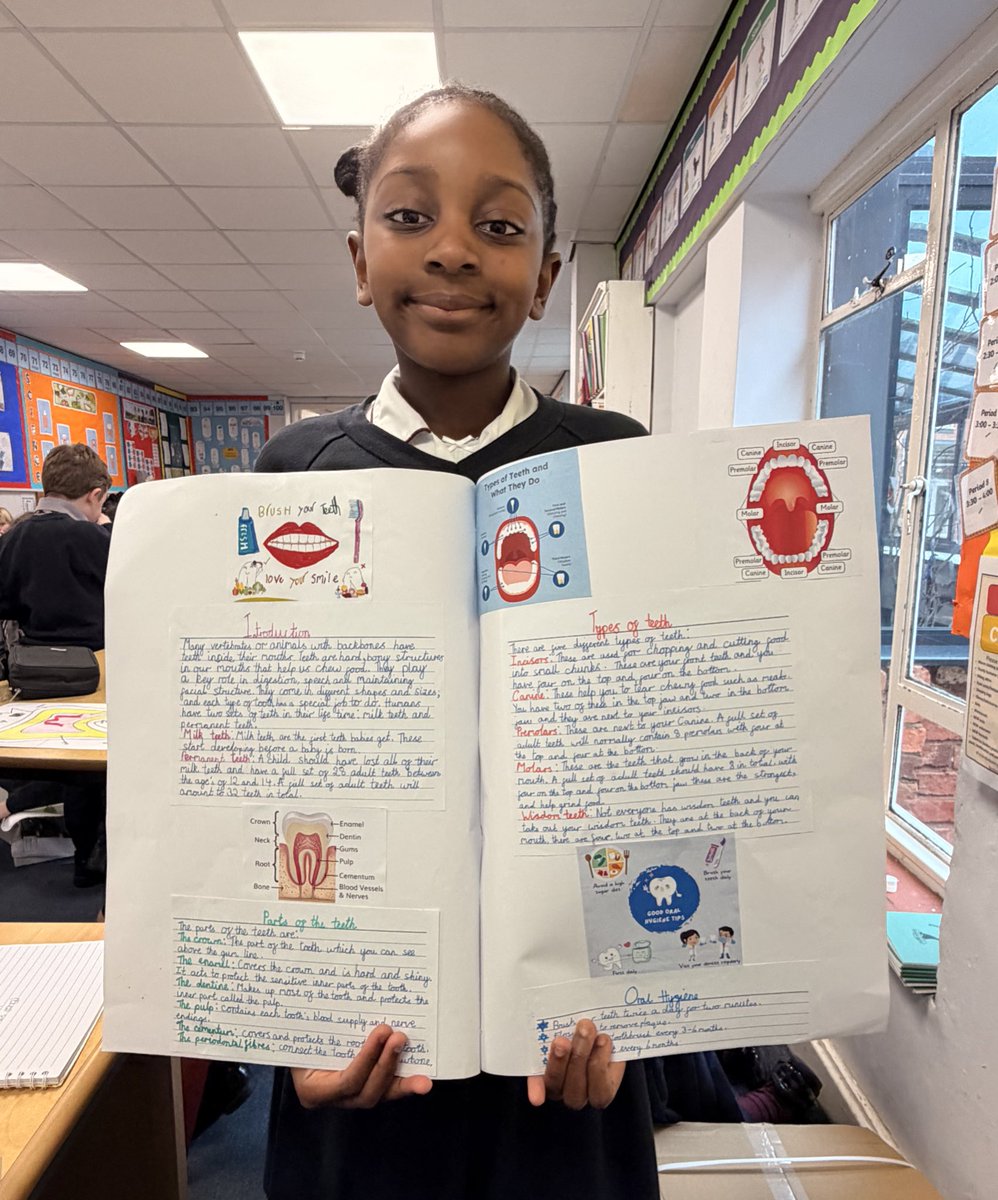 BRUSH your teeth
love your smile
Introduction
Many vertebrates or animals with backbones have
teeth inside their mouths. Teeth are hard, bony structures
in our mouths that help us chew food. They play
a key role in digestion, speech and maintaining
facial structure. They come in different shapes and sizes;
and each type of tooth has a special job to do. Humans
have two sets of teeth in their life time: milk teeth and
permanent teeth.
Milk teeth: Milk teeth are the first teeth babies get. These
start developing before a baby is born.
Permanent teeth: A child should have lost all of their
milk teeth and have a full set of 28 adult teeth between
the age's of 12 and 14. A full set of adult teeth will
amount to 32 teeth in total.
Crown
Neck
Root
Bone
Enamel
Dentin
Gums
Pulp
Cementum
Blood Vessels
& Nerves
Parts of the teeth
The parts of the teeth are:
The crown: The part of the tooth which you can see
above the gum line.
The enamel: Covers the crown and is hard and shiny.
It acts to protect the sensitive inner parts of the tooth.
The dentine: Makes up most of the tooth and protects the
inner part called the pulp.
The pulp: Contains each tooth's blood supply and nerve
endings.
The cementum: covers and protects the root tooth.
The periodontal fibres: connect the tooth
Types of Teeth and
What They Do
Incisor
Canine
Canine
Premolar
Premolar
Molar
Molar
Premolar
Premolar
Canine
Canine
Incisor
Types of teeth
There are five different types of teeth:
Incisors: These are used for chopping and cutting food
into small chunks. These are your front teeth and you
have four on the top and four on the bottom.
Canine: These help you to tear chewy food such as meat.
You have two of these in the top jaw and two in the bottom
jaw and they are next to your incisors.
Premolars: These are next to your Canine. A full set of
adult teeth will normally contain 8 premolars with four at
the top and four at the bottom.
Molars: These are the teeth that grow in the back of your
mouth. A full set of adult teeth should have 8 in total with
four on the top and four on the bottom jaw. these are the strongest
and help grind food.
Wisdom teeth: Not everyone has wisdom teeth and you can
take out your wisdom teeth. They are at the back of your
mouth there are four, two at the top and two at the bottom.
Avoid a high
sugar diet
Brush your
teeth daily
GOOD ORAL
HYGIENE TIPS
Floss daily
Visit your dentist regularly
Oral Hygiene
Brush teeth twice a day for two minutes.
to remove plaque.
toothbrush every 3-6 months.
every 6 months.